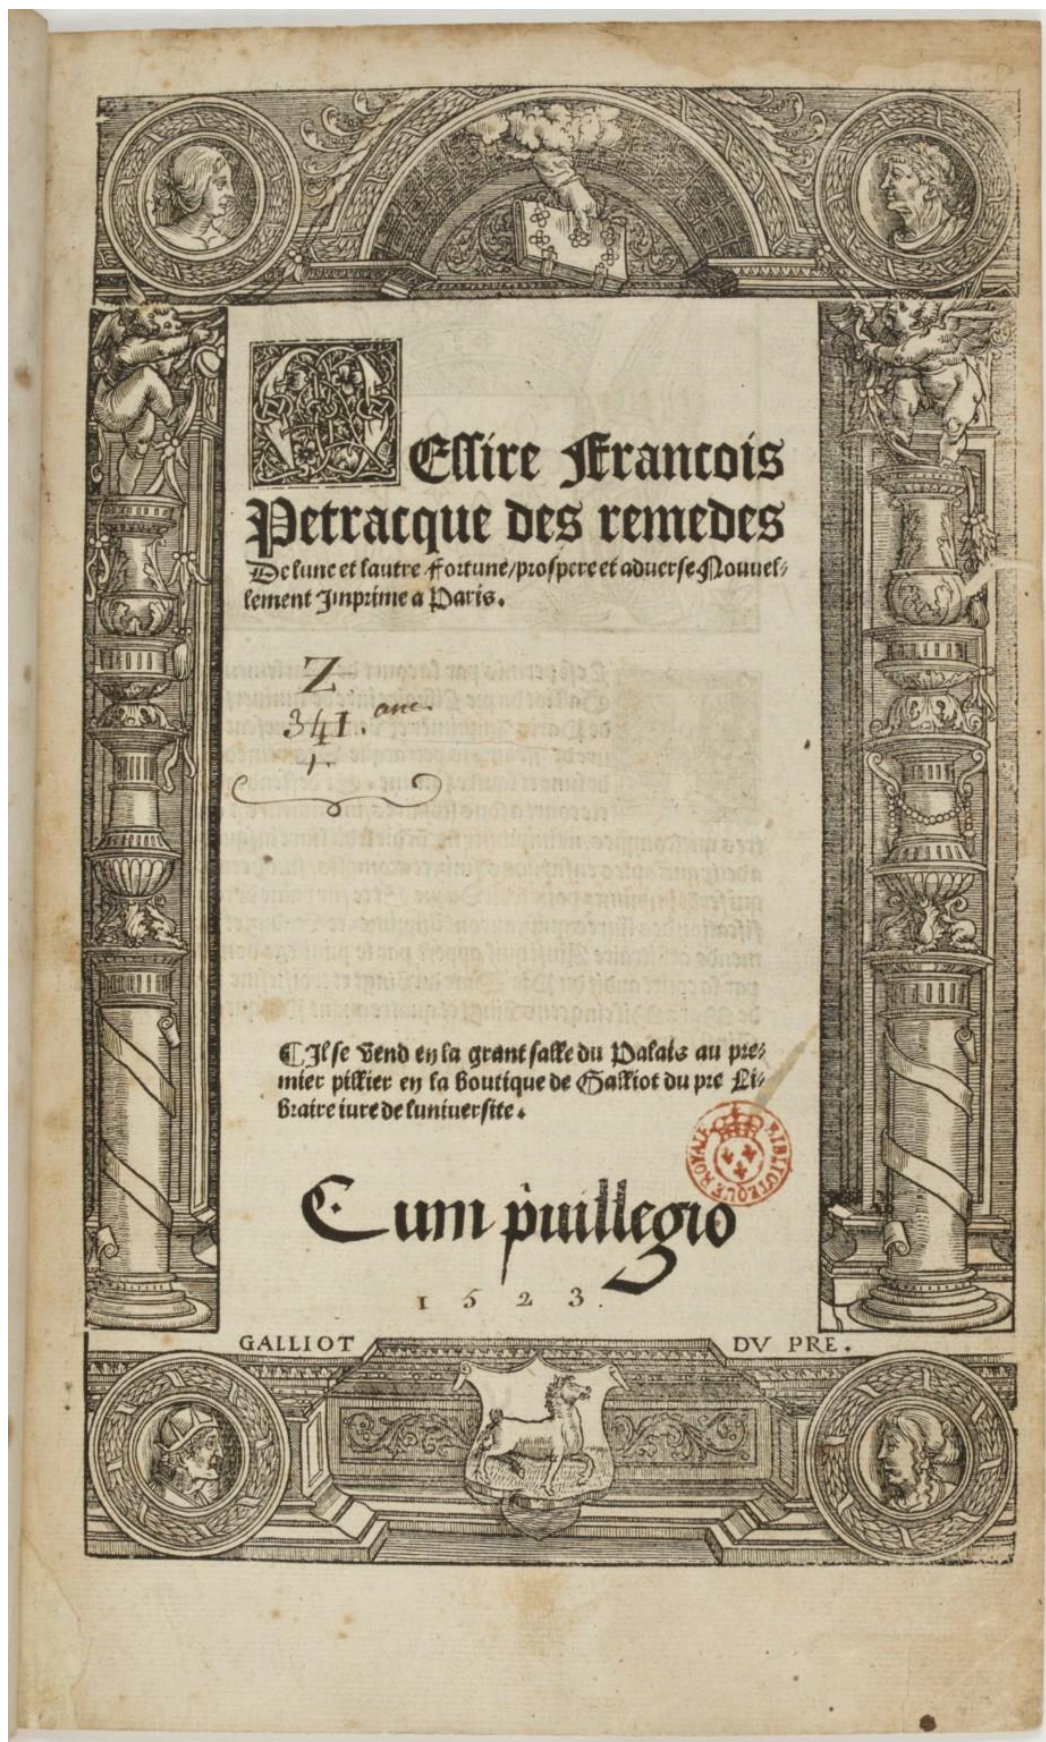 MEssire Francois
Petracque des remedes
De lune et lautre fortune/prospere et aduerse Nouuel-
lement Imprime a Paris.
Z
341. anc.
¶ Il se vend en la grant salle du Palais au pre-
mier pillier en la boutique de Galliot du pre Li-
braire iure de luniuersite.
BIBLIOTEQUE ROYALE
Cum puillegio
1523.
GALLIOT DV PRE.